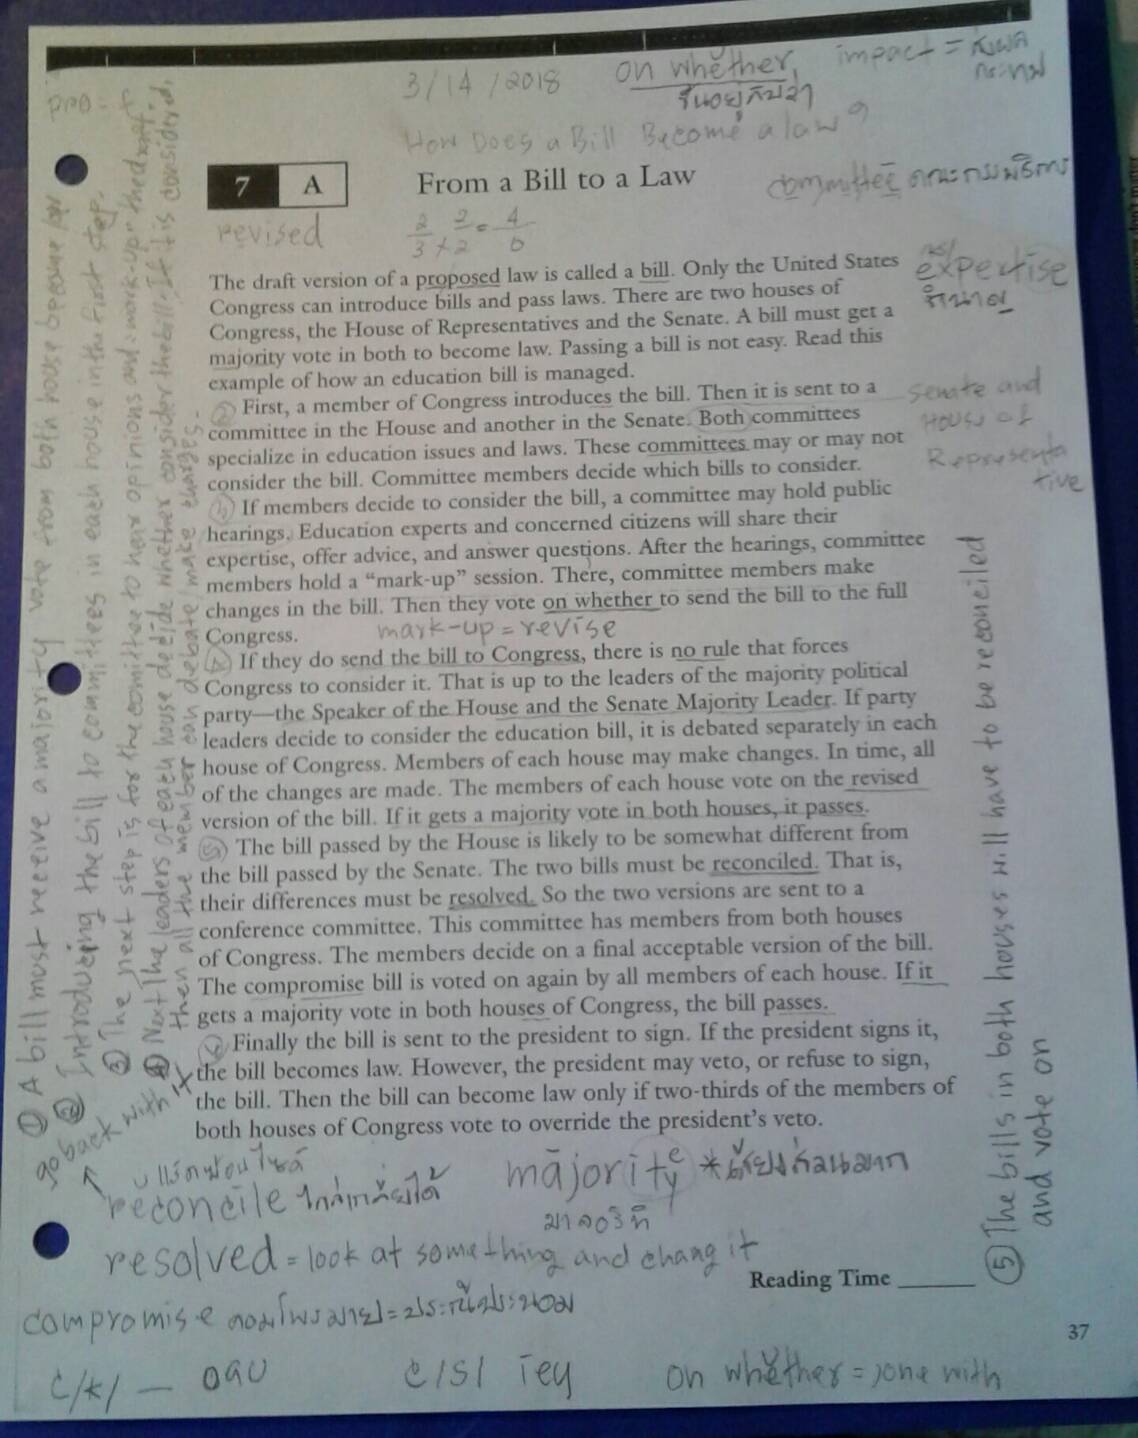 3/14/2018
on whether
ขึ้นอยู่กับว่า
impact = ส่งผล
กระทบ
How Does a Bill Become a law?
7 A
From a Bill to a Law
committee คณะกรรมธิการ
revised
2/3 × 2/2 = 4/6
The draft version of a proposed law is called a bill. Only the United States
Congress can introduce bills and pass laws. There are two houses of
Congress, the House of Representatives and the Senate. A bill must get a
majority vote in both to become law. Passing a bill is not easy. Read this
example of how an education bill is managed.
expertise
First, a member of Congress introduces the bill. Then it is sent to a
committee in the House and another in the Senate. Both committees
specialize in education issues and laws. These committees may or may not
consider the bill. Committee members decide which bills to consider.
Senate and
House of
Representa
tive
If members decide to consider the bill, a committee may hold public
hearings. Education experts and concerned citizens will share their
expertise, offer advice, and answer questions. After the hearings, committee
members hold a “mark-up” session. There, committee members make
changes in the bill. Then they vote on whether to send the bill to the full
Congress.
mark-up = revise
If they do send the bill to Congress, there is no rule that forces
Congress to consider it. That is up to the leaders of the majority political
party—the Speaker of the House and the Senate Majority Leader. If party
leaders decide to consider the education bill, it is debated separately in each
house of Congress. Members of each house may make changes. In time, all
of the changes are made. The members of each house vote on the revised
version of the bill. If it gets a majority vote in both houses, it passes.
The bill passed by the House is likely to be somewhat different from
the bill passed by the Senate. The two bills must be reconciled. That is,
their differences must be resolved. So the two versions are sent to a
conference committee. This committee has members from both houses
of Congress. The members decide on a final acceptable version of the bill.
The compromise bill is voted on again by all members of each house. If it
gets a majority vote in both houses of Congress, the bill passes.
Finally the bill is sent to the president to sign. If the president signs it,
the bill becomes law. However, the president may veto, or refuse to sign,
the bill. Then the bill can become law only if two-thirds of the members of
both houses of Congress vote to override the president’s veto.
① A bill must receive a majority vote from both house become
② Introducing the bill to committees in each house in the first step.
③ The next step is for the committee to hear opinions and "mark-up" the
④ Next The leaders of each house decide whether consider the bill. If it is considered,
then all the member can debate, make changes.
go back with it
⑤ The bills in both houses will have to be reconciled
and vote on
reconcile ไกล่เกลี่ยได้
majority *เสียงส่วนมาก
resolved = look at something and chang it
Reading Time
compromise คอมโพรมาย = ประนีประนอม
37
c/k/ —
c/s/
on whether =